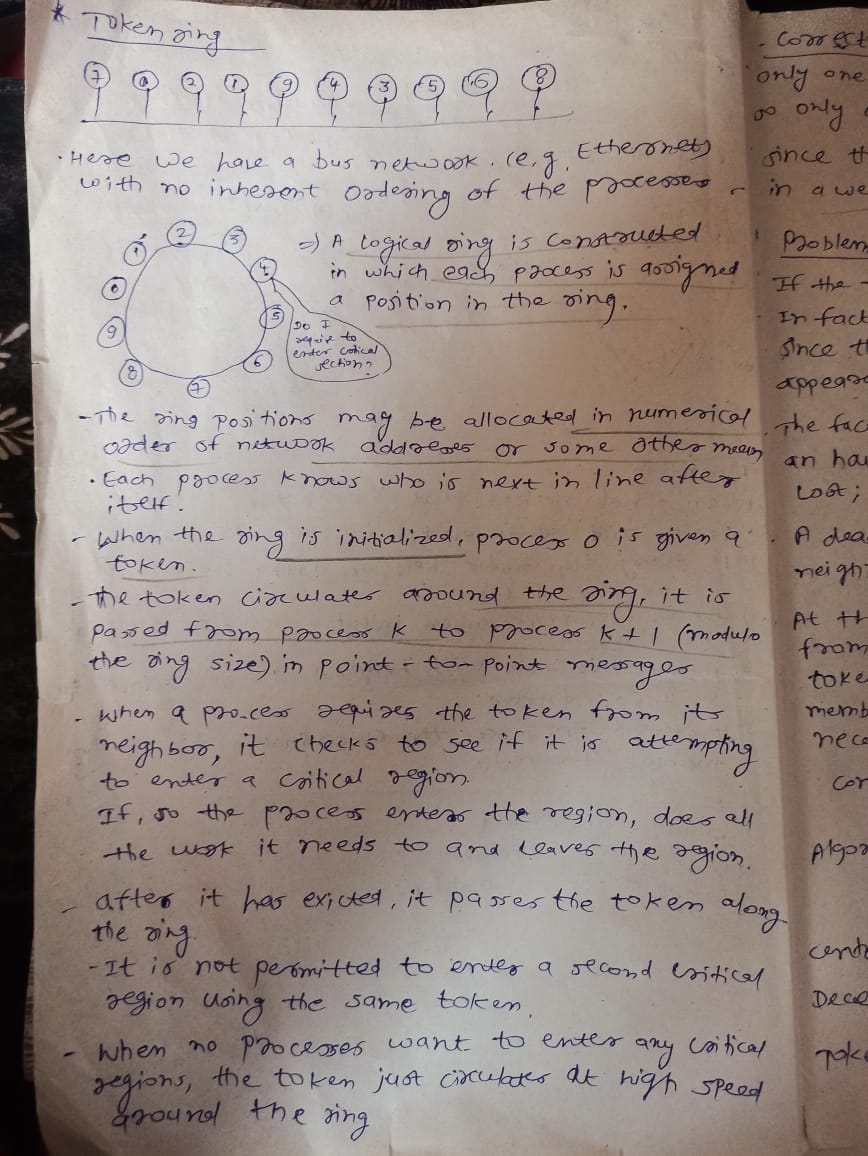 * Token ring
7 0 2 1 9 4 3 5 6 8
· Here we have a bus network. (e.g. Ethernet)
with no inherent ordering of the processes
1 2 3 4 5 6 7 8 9 0
Do I
require to
enter critical
section?
=) A logical ring is constructed
in which each process is assigned
a position in the ring.
- The ring positions may be allocated in numerical
order of network addresses or some other mean
· Each process knows who is next in line after
itself.
- When the ring is initialized, process 0 is given a
token.
- The token circulates around the ring, it is
passed from process k to process k+1 (modulo
the ring size) in point-to-point messages
- When a process requires the token from its
neighbor, it checks to see if it is attempting
to enter a critical region
If, so the process enters the region, does all
the work it needs to and leaves the region.
- after it has exicted, it passes the token along
the ring.
- It is not permitted to enter a second critical
region using the same token.
- When no processes want to enter any critical
regions, the token just circulates at high speed
around the ring
- Correct
only one
so only
since th
in a we
Problem
If the
In fact
Since t
appear
The fac
an hou
Lost;
· A dea
neigh
At th
from
toke
memb
nece
cor
Algor
cent
Dece
Toke